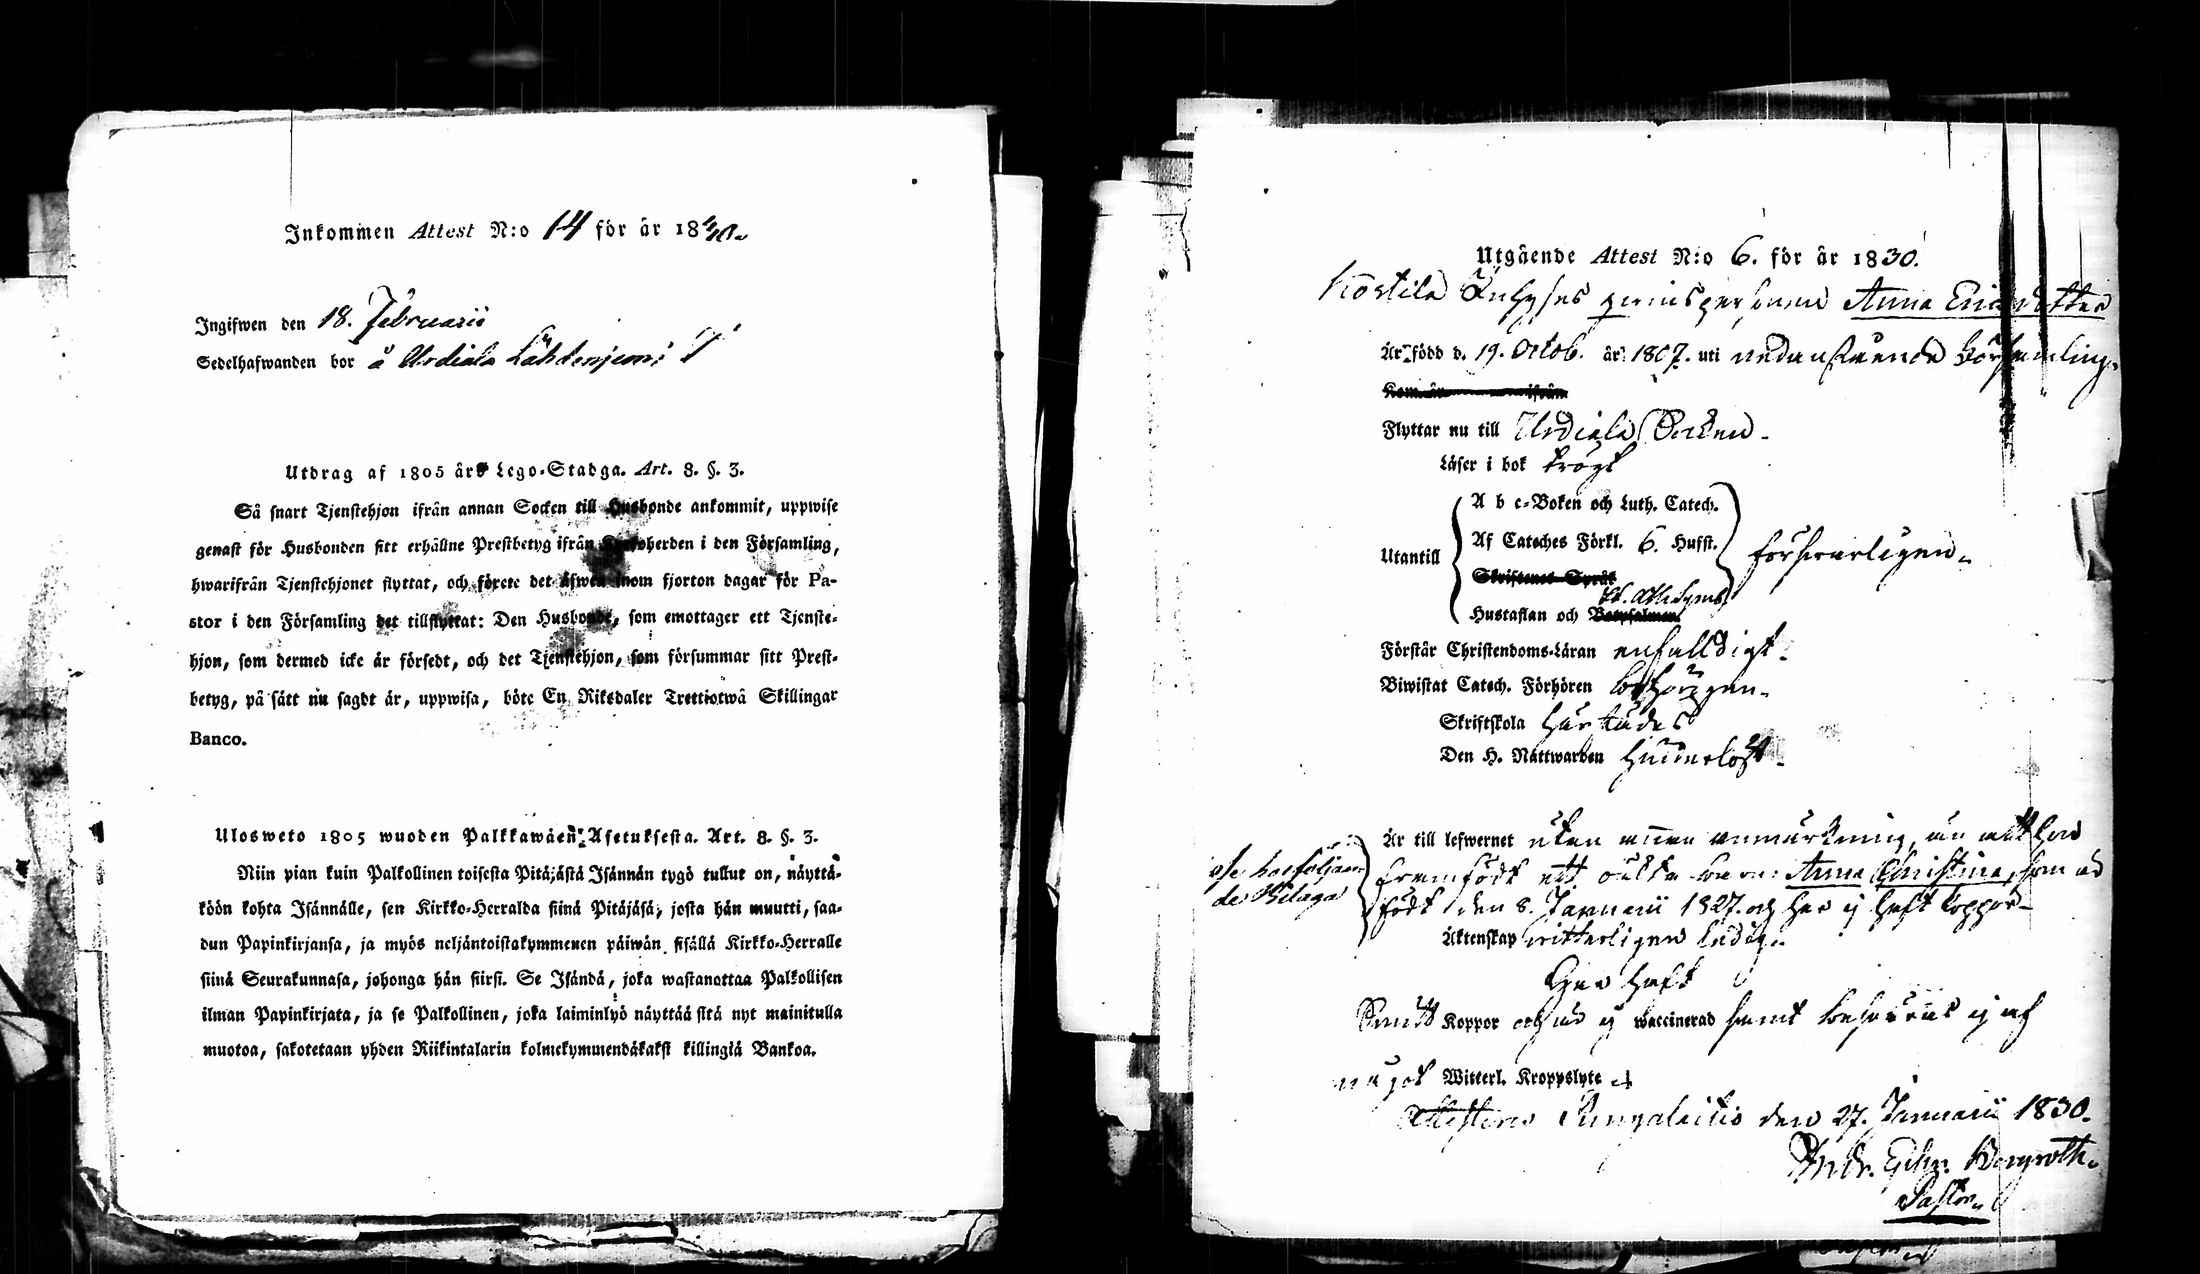 Inkommen Attest N:o 14 för år 18
Ingifwen den 18. Februarii
Sedelhafwanden bor å Urdiala
Utdrag af 1805 års Lego-Stadga. Art. 8. §. 3.
Så snart Tjenstehjon ifrån annan Socken till Husbonde ankommit, uppwise
genast för Husbonden sitt erhållne Prestbetyg ifrån Kyrkoherden i den Församling,
hwarifrån Tjenstehjonet flyttat, och förete det äfwen inom fjorton dagar för Pa-
stor i den Församling det tillflyttat: Den Husbonde, som emottager ett Tjenste-
hjon, som dermed icke är försedt, och det Tjenstehjon, som försummar sitt Prest-
betyg, på sätt nu sagdt är, uppwisa, böte En Riksdaler Trettiotwå Skillingar
Banco.
Ulosweto 1805 wuoden Palkkawäen Asetuksesta. Art. 8. §. 3.
Niin pian kuin Palkollinen toisesta Pitäjästä Isännän tygö tullut on, näyttä-
köön kohta Isännälle, sen Kirkko-Herralda siinä Pitäjäsä, josta hän muutti, saa-
dun Papinkirjansa, ja myös neljäntoistakymmenen päiwän sisällä Kirkko-Herralle
siinä Seurakunnasa, johonga hän siirsi. Se Isändä, joka wastanottaa Palkollisen
ilman Papinkirjata, ja se Palkollinen, joka laiminlyö näyttää sitä nyt mainitulla
muotoa, sakotetaan yhden Riikintalarin kolmekymmendäkaksi killingiä Bankoa.
Utgående Attest N:o 6. för år 1830.
Anna Ericsdotter
Är född d. 19. Octob. år 1807. uti nedanstående Församling.
Kom år ifrån
Flyttar nu till Urdiala Socken.
Läser i bok trögt
A b c-Boken och Luth. Catech.
Utantill Af Cateches Förkl. 6. Hufst. försvarligen.
Skriftenes Språk
Hustaflan och Botpsalmen
Förstår Christendoms-Läran enfalldigt.
Biwistat Catech. Förhören behörigen.
Skriftskola härstädes
Den H. Nattwarden hinderlöst.
Är till lefwernet utan annan anmärkning, än att hon
framfödt ett oäkta barn: Anna Christina, som är
född den 8. Januarii 1827. och har ej haft koppor
Äktenskap witterligen ledig.
Har haft
Smått Koppor och är ej waccinerad samt besväras ej af
något Witterl. Kroppslyte
Attesterar Pungalaitio den 27. Januarii 1830.
Andr. Bergroth.
Pastor.